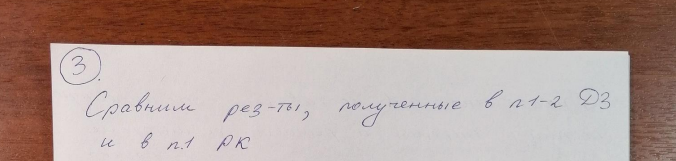 3.
Сравним рез-ты, полученные в п.1-2 ДЗ
и в п.1 РК